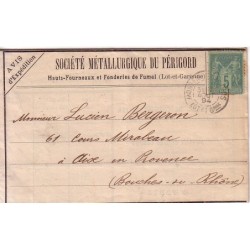 AVIS
d'Expédition
SOCIÉTÉ MÉTALLURGIQUE DU PÉRIGORD
Hauts-Fourneaux et Fonderies de Fumel (Lot-et-Garonne)
5
Monsieur Lucien Bergeron
61 Cours Mirabeau
à Aix en Provence
(Bouches-du-Rhône)